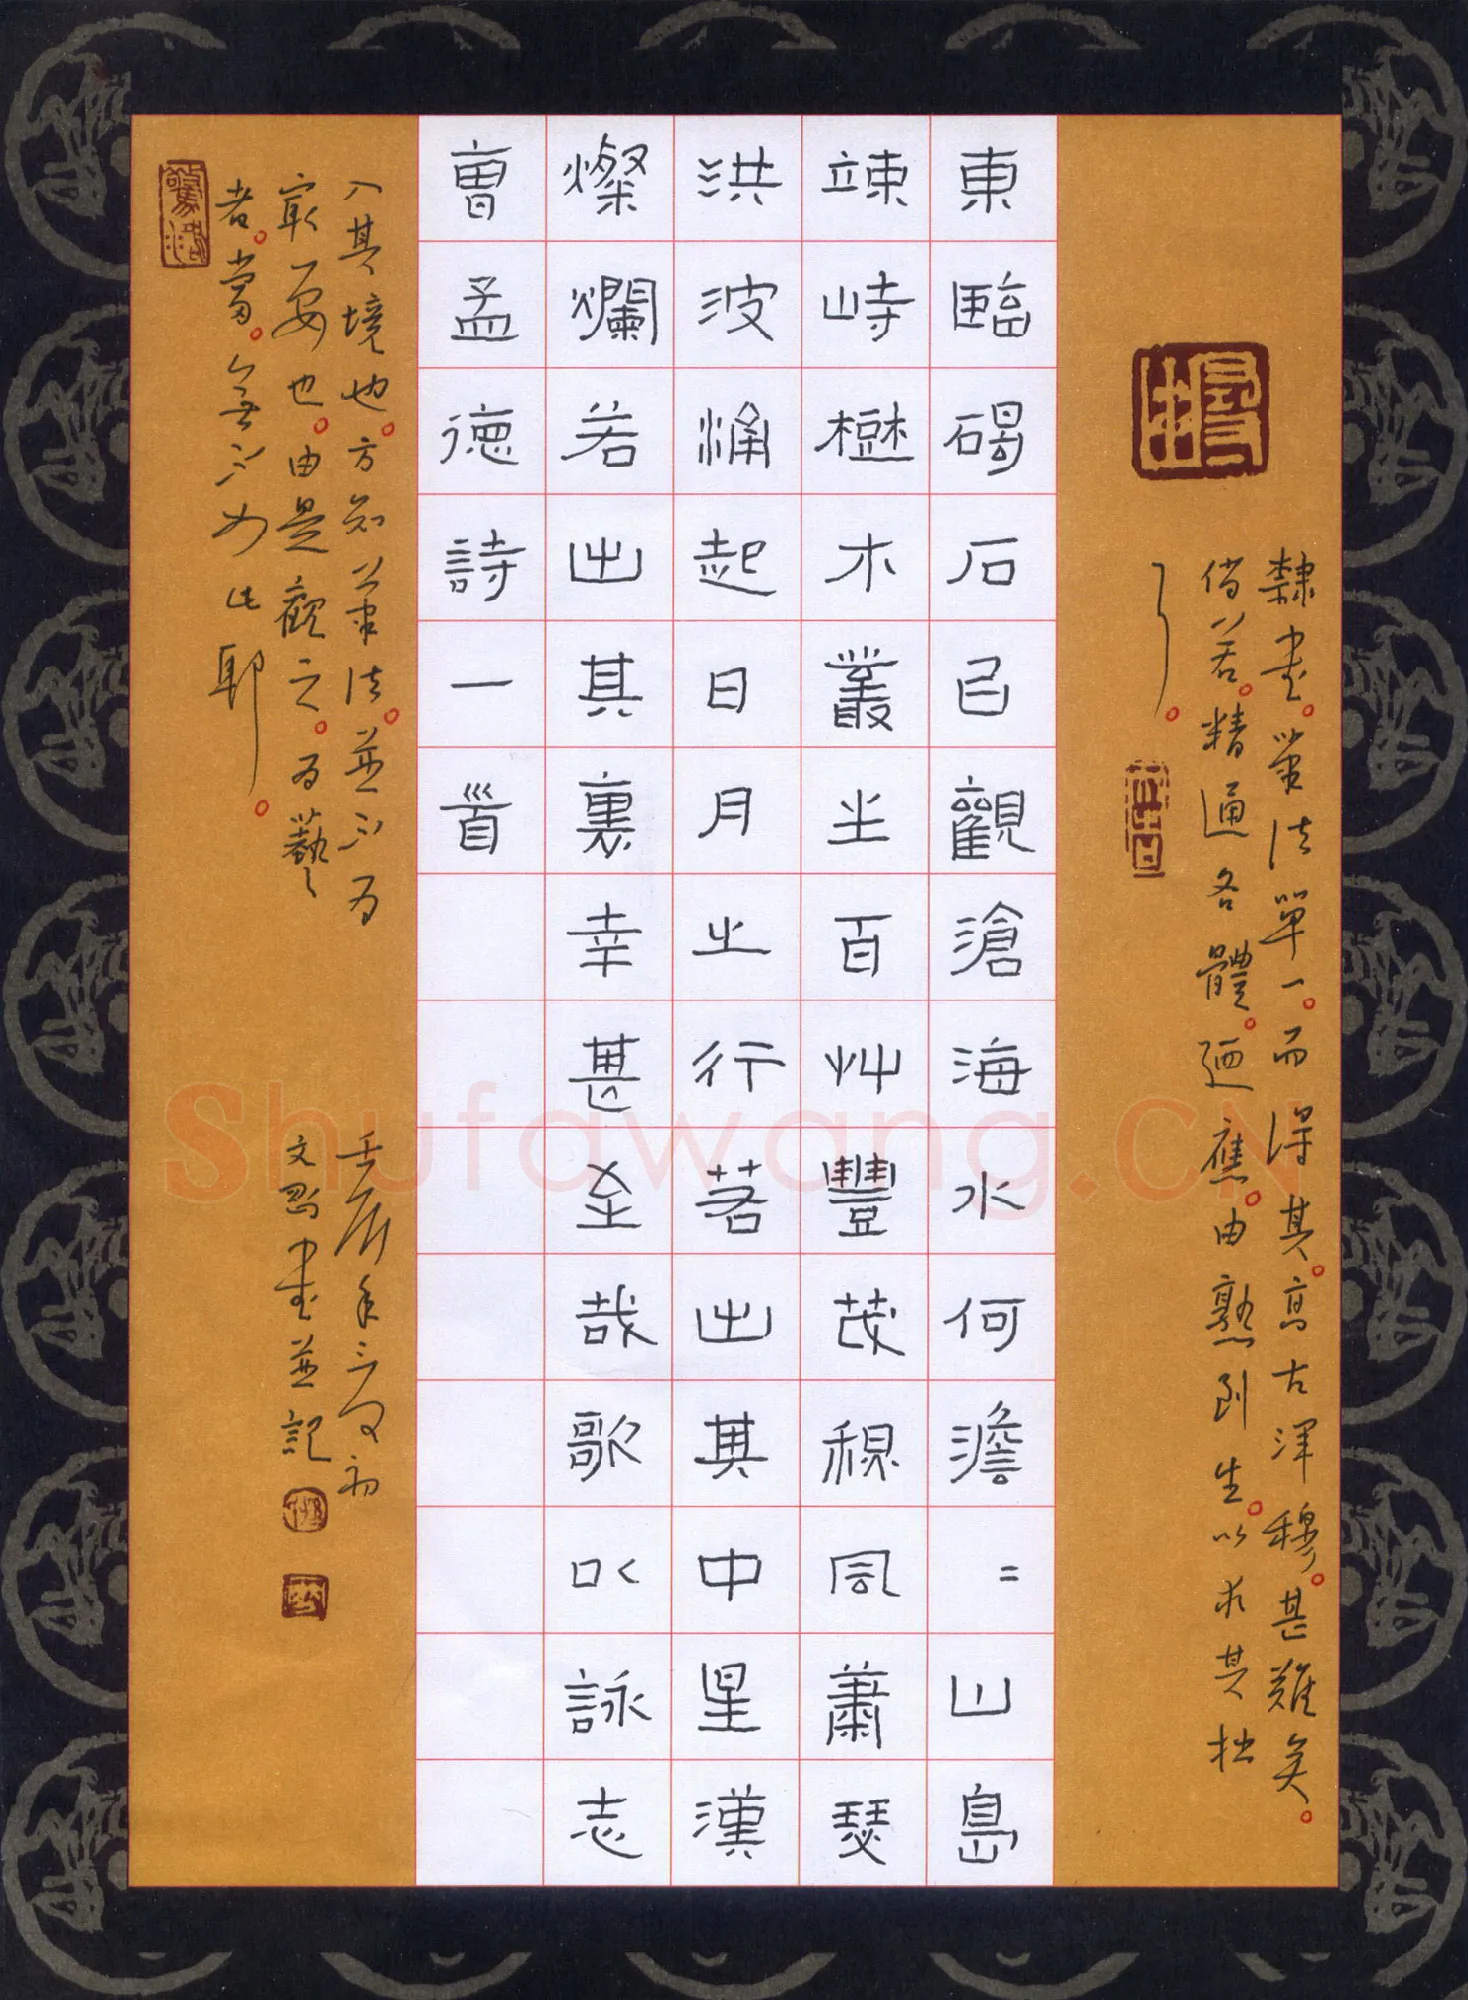 東臨碣石㠯觀滄海水何澹〻山島
竦峙樹木叢生百艸豐茂秋風蕭瑟
洪波涌起日月之行若出其中星漢
燦爛若出其裏幸甚至哉歌以詠志
曹孟德詩一首
隸書。筆法單一。而得其。高古渾穆。甚難矣。
倘若。精通各體。廼應。由熟到生。以求其拙
了。
入其境也。方知筆法。並不為
最要也。由是觀之。為藝
者。當。無不如此耶。
年三月初
文
書並記
Shufawang.CN